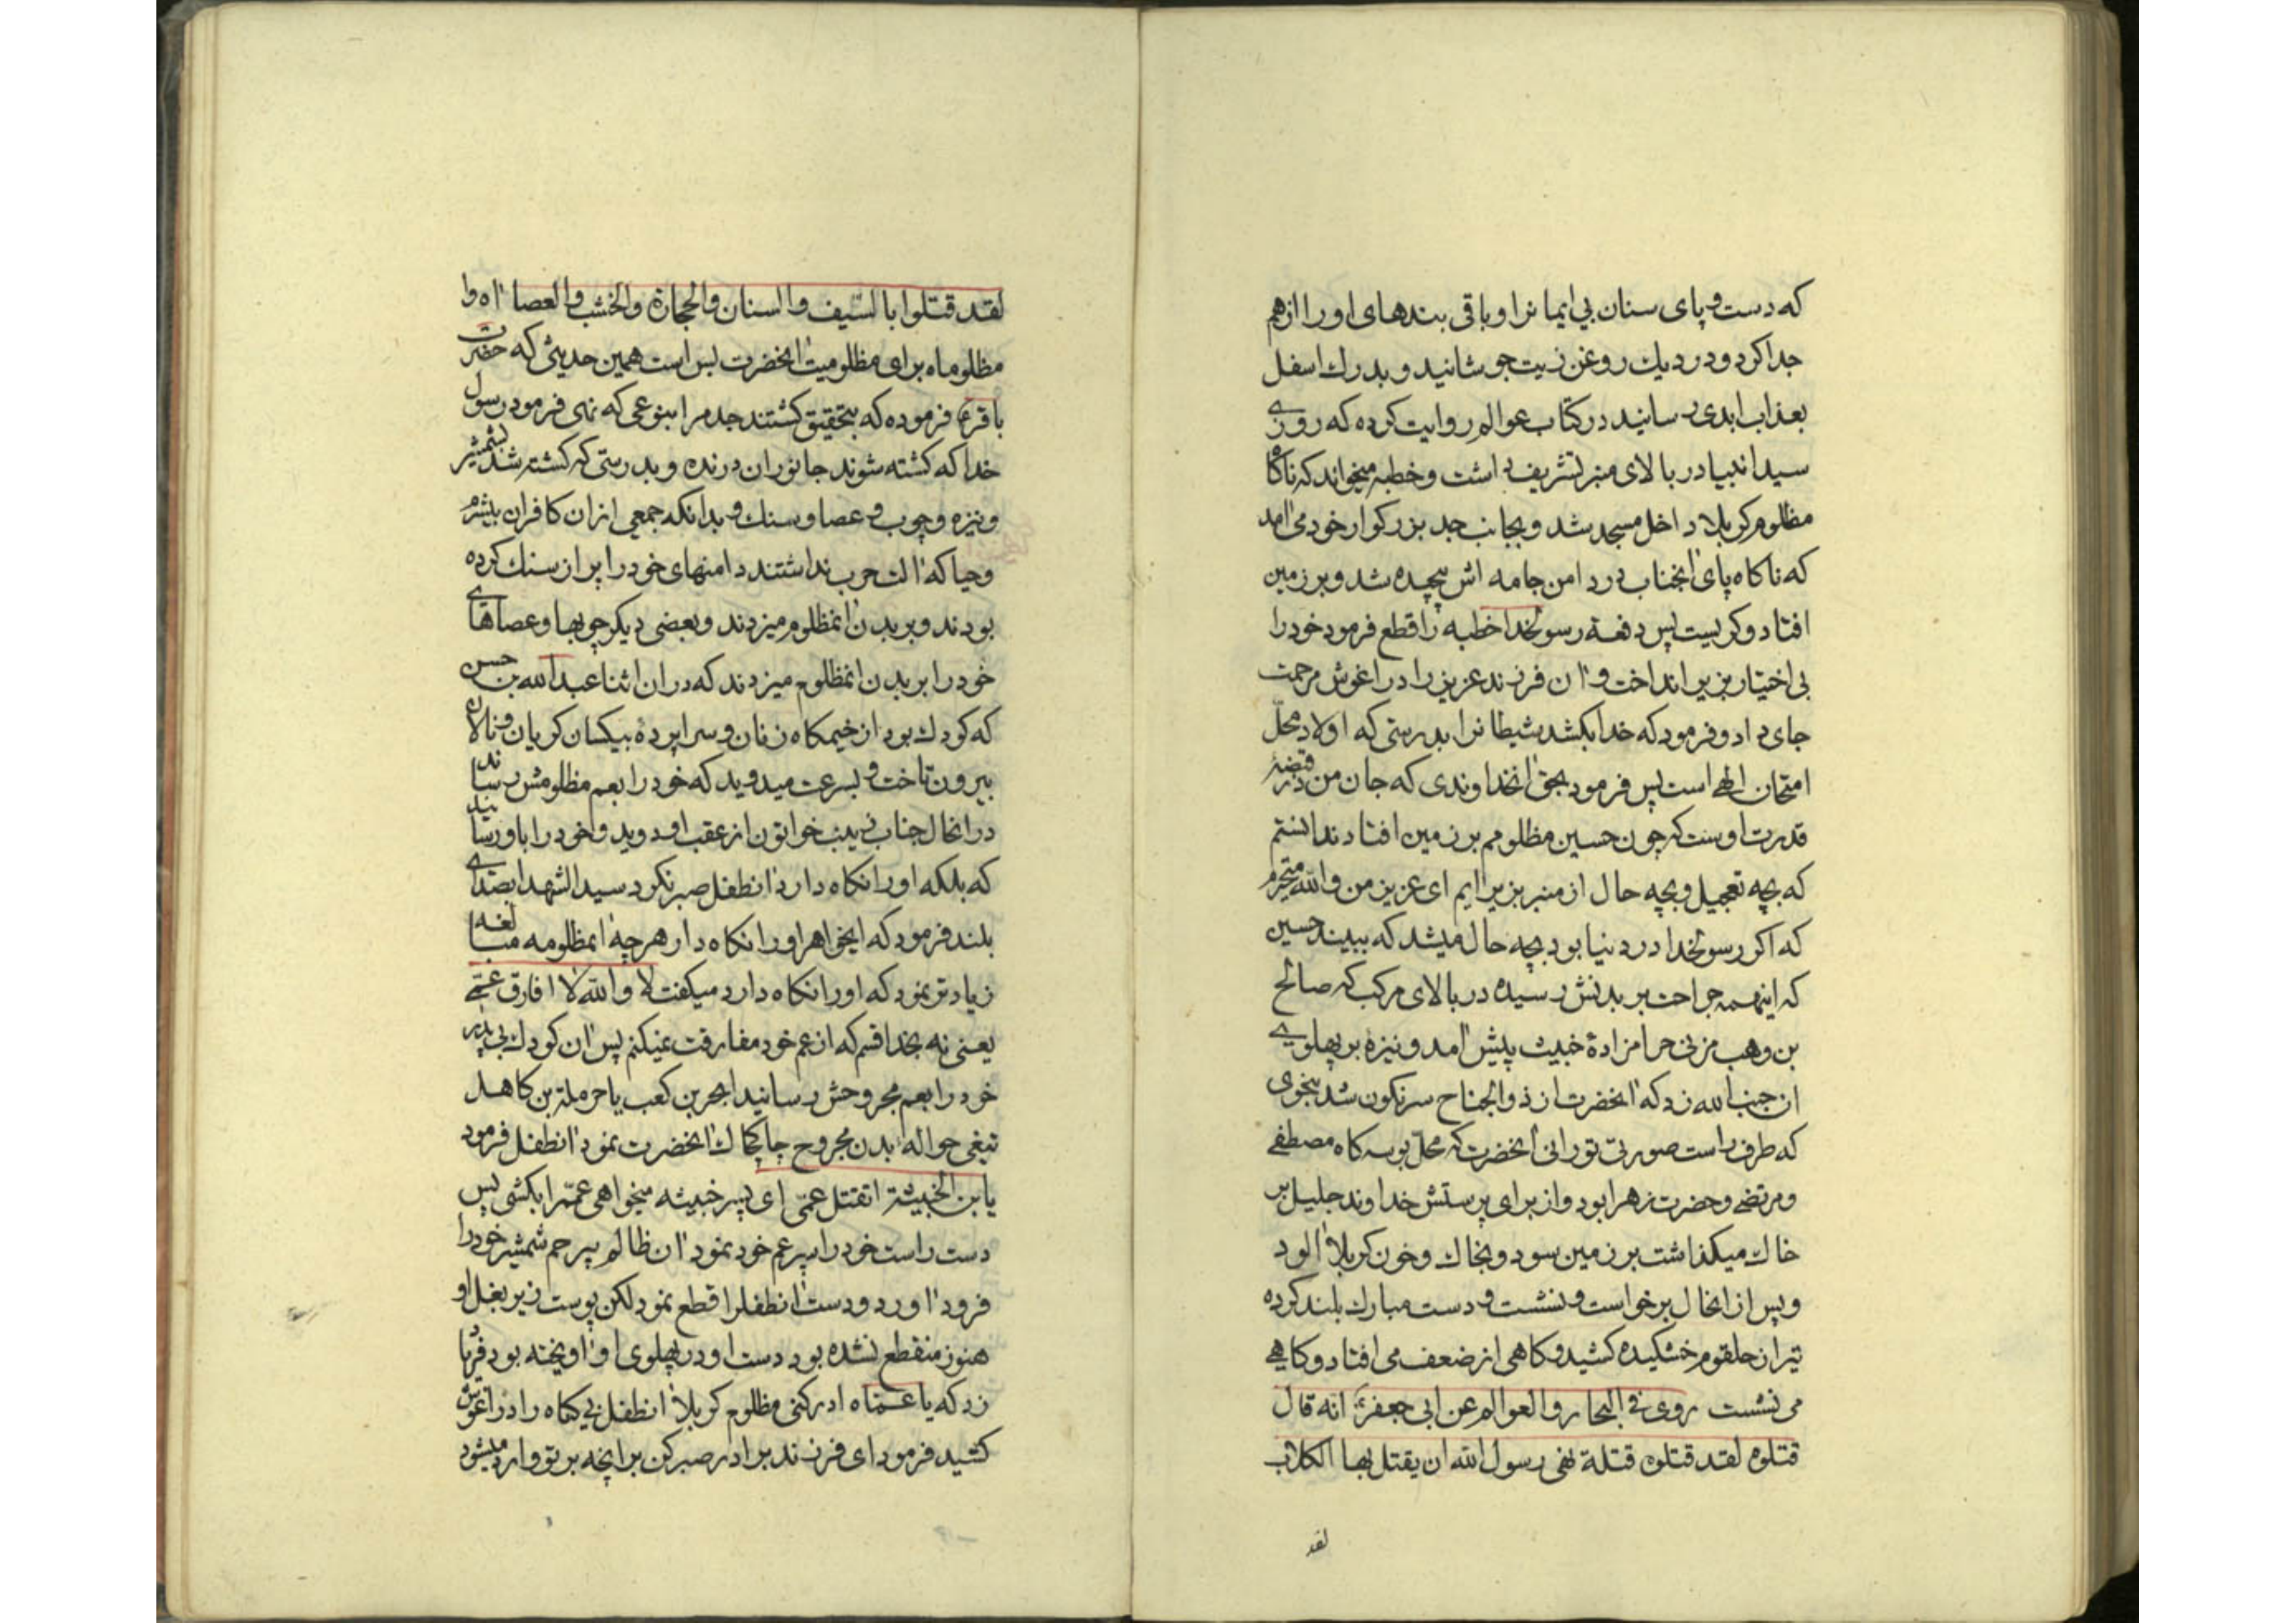 که دست و پای سنان بی ایمانرا و باقی بندهای او را از هم
جدا کرد و در دیك روغن زیت جوشانید و بدرك اسفل
بعذاب ابدی رسانید در کتاب عوالم روایت کرده که روزی
سید انبیا در بالای منبر تشریف داشت و خطبه میخواند که ناکاه
مظلوم کربلا داخل مسجد شد و بجانب جد بزرکوار خود می آمد
که ناکاه پای آنجناب در دامن جامه اش پیچیده شد و بر زمین
افتاد و کریست پس دفعة رسولخدا خطبه را قطع فرمود خود را
بی اختیار بزیر انداخت و آن فرزند عزیز را در اغوش مرحمت
جای داد و فرمود که خدا بکشد شیطانرا بدرستی که اولاد محلّ
امتحان الهی است پس فرمود بحق آنخداوندی که جان من در قبضۀ
قدرت اوست که چون حسین مظلومم بر زمین افتاد ندانستم
که بچه تعجیل و بچه حال از منبر بزیر آیم ای عزیز من والله متحیرم
که اکر رسولخدا در دنیا بود بچه حال میشد که ببیند حسین
که اینهمه جراحت بر بدنش رسیده در بالای مرکب که صالح
بن وهب مزنی حرامزادۀ خبیث پیش آمد و نیزه بر پهلوی
ان جنب الله زد که آنحضرت از ذوالجناح سرنکون شد بنحوی
که طرف راست صورت نورانی آنحضرت که محلّ بوسه کاه مصطفی
و مرتضی و حضرت زهرا بود و از برای پرستش خداوند جلیل بر
خاك میکذاشت بر زمین سود و بخاك و خون کربلا آلود
و پس از انحال برخواست و نشست و دست مبارك بلند کرده
تیر از حلقوم خشکیده کشید و کاهی از ضعف می افتاد و کاهی
می نشست روی فی البحار و العوالم عن ابی جعفرع انه قال
قتلوه لقد قتلوه قتلة نهی رسول الله ان یقتل بها الکلاب
لقد
لقد قتلوا بالسّیف و السنان و الحجارة والخشب و العصا آه وا
مظلوماه برای مظلومیت آنحضرت بس است همین حدیثی که حضرت
باقرع فرموده که بتحقیق کشتند جدمرا بنوعی که نهی فرمود رسول
خدا که کشته شوند جانوران درنده و بدرستی که کشته شد بشمشیر
و نیزه و چوب و عصا و سنك و بدانکه جمعی از ان کافران بیشرم
و حیا که آلت حرب نداشتند دامنهای خود را پر از سنك کرده
بودند و بر بدن آنمظلوم میزدند و بعضی دیکر چوبها و عصاهای
خود را بر بدن انمظلوم میزدند که در ان اثنا عبدالله بن حسن
که کودك بود از خیمکاه زنان و سراپردۀ بیکسان کریان و نالان
بیرون تاخت و بسرعت میدوید که خود را بعم مظلومش رساند
در انحال جناب زینب خواتون از عقب او دوید و خود را باو رسانید
که بلکه او را نکاه دارد آنطفل صبر نکرد سید الشهدا بصدای
بلند فرمود که ایخواهر او را نکاه دار هر چه آنمظلومه مبالغه
زیادتر نمود که او را نکاه دارد میکفت لا والله لا افارق عمّی
یعنی نه بخدا قسم که از عم خود مفارقت نمیکنم پس آن کودك بی پدر
خود را بعم مجروحش رسانید ابجر بن کعب یا حرملة بن کاهل
تیغی حواله بدن مجروح چاکچاك آنحضرت نمود آنطفل فرمود
یابن الخبیثة اتقتل عمّی ای پسر خبیثه میخواهی عمّمرا بکشی پس
دست راست خود را سپر عم خود نمود آن ظالم بیرحم شمشیر خود را
فرود آورد و دست آنطفلرا قطع نمود لکن پوست زیر بغل او
هنوز منقطع نشده بود دست او در پهلوی او آویخته بود فریاد
زد که یا عمّاه ادرکنی مظلوم کربلا آنطفل بی کناه را در اغوش
کشید فرمود ای فرزند برادر صبر کن بر آنچه بر تو وارد میشود